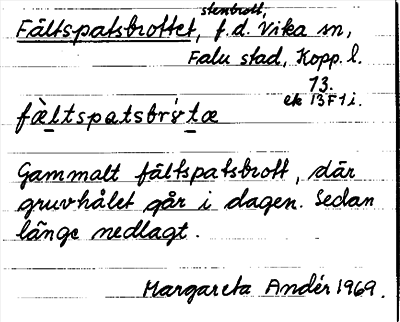 stenbrott,
Fältspatsbrottet, f.d. Vika sn,
Falu stad, Kopp. l.
13.
ek 13F1i.
fàltspatsbrótæ
Gammalt fältspatsbrott, där
gruvhålet går i dagen. Sedan
länge nedlagt.
Margareta Andér 1969.